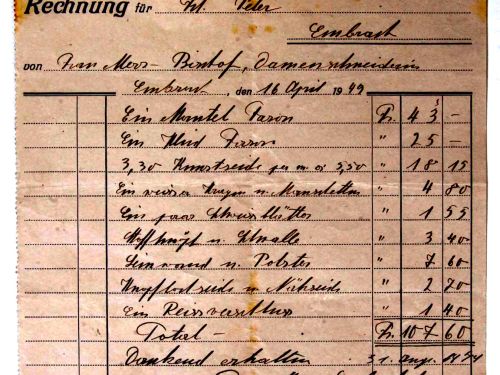 Rechnung für Frl. Peter
Embrach
von Frau Moos-Bischof, Damenschneiderin
Embrach, den 16 April 1949
Ein Mantel Façon Fr. 43 —
Ein Kleid Façon " 25 —
3,30 Kunstseide per m à 5,50 " 18 15
Ein weisser Kragen u. Manschetten " 4 80
Ein paar Schweissblätter " 1 55
Stoffknöpf u. Schnalle " 3 40
Leinwand u. Polster " 7 60
Knopflochseide u. Nähseide " 2 70
Ein Reissverschluss " 1 40
Total — Fr. 107 60
Dankend erhalten 31. Aug.